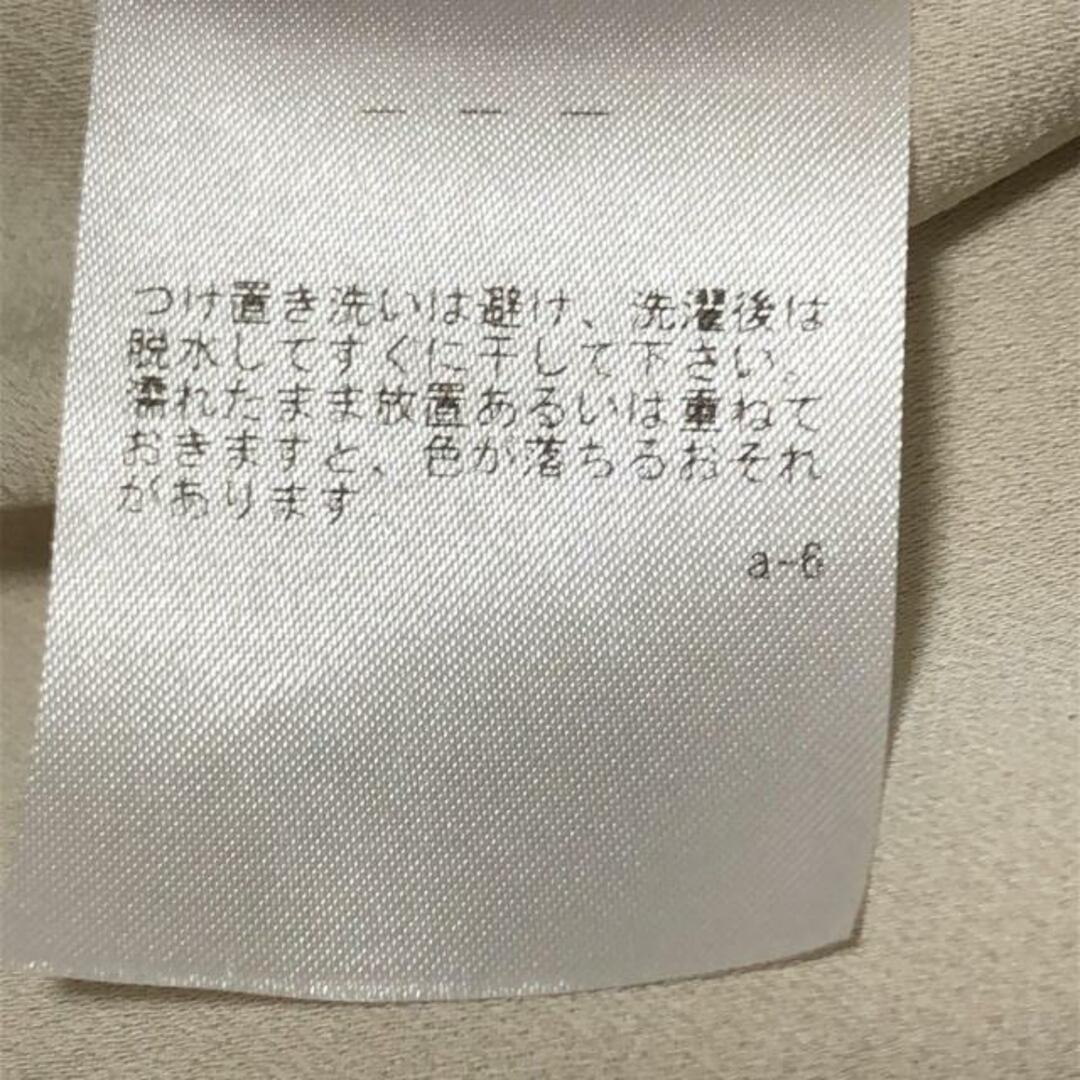 — — —
つけ置き洗いは避け、洗濯後は
脱水してすぐに干して下さい。
濡れたまま放置あるいは重ねて
おきますと、色が落ちるおそれ
があります。
a-6